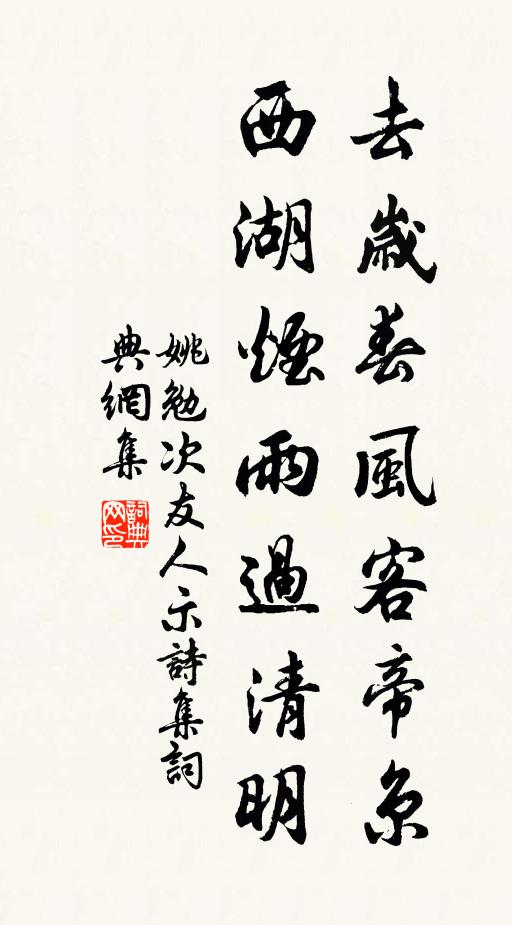 去歲春風客帝京
西湖煙雨過清明
姚勉次友人示詩集詞
典網集
詞典网印